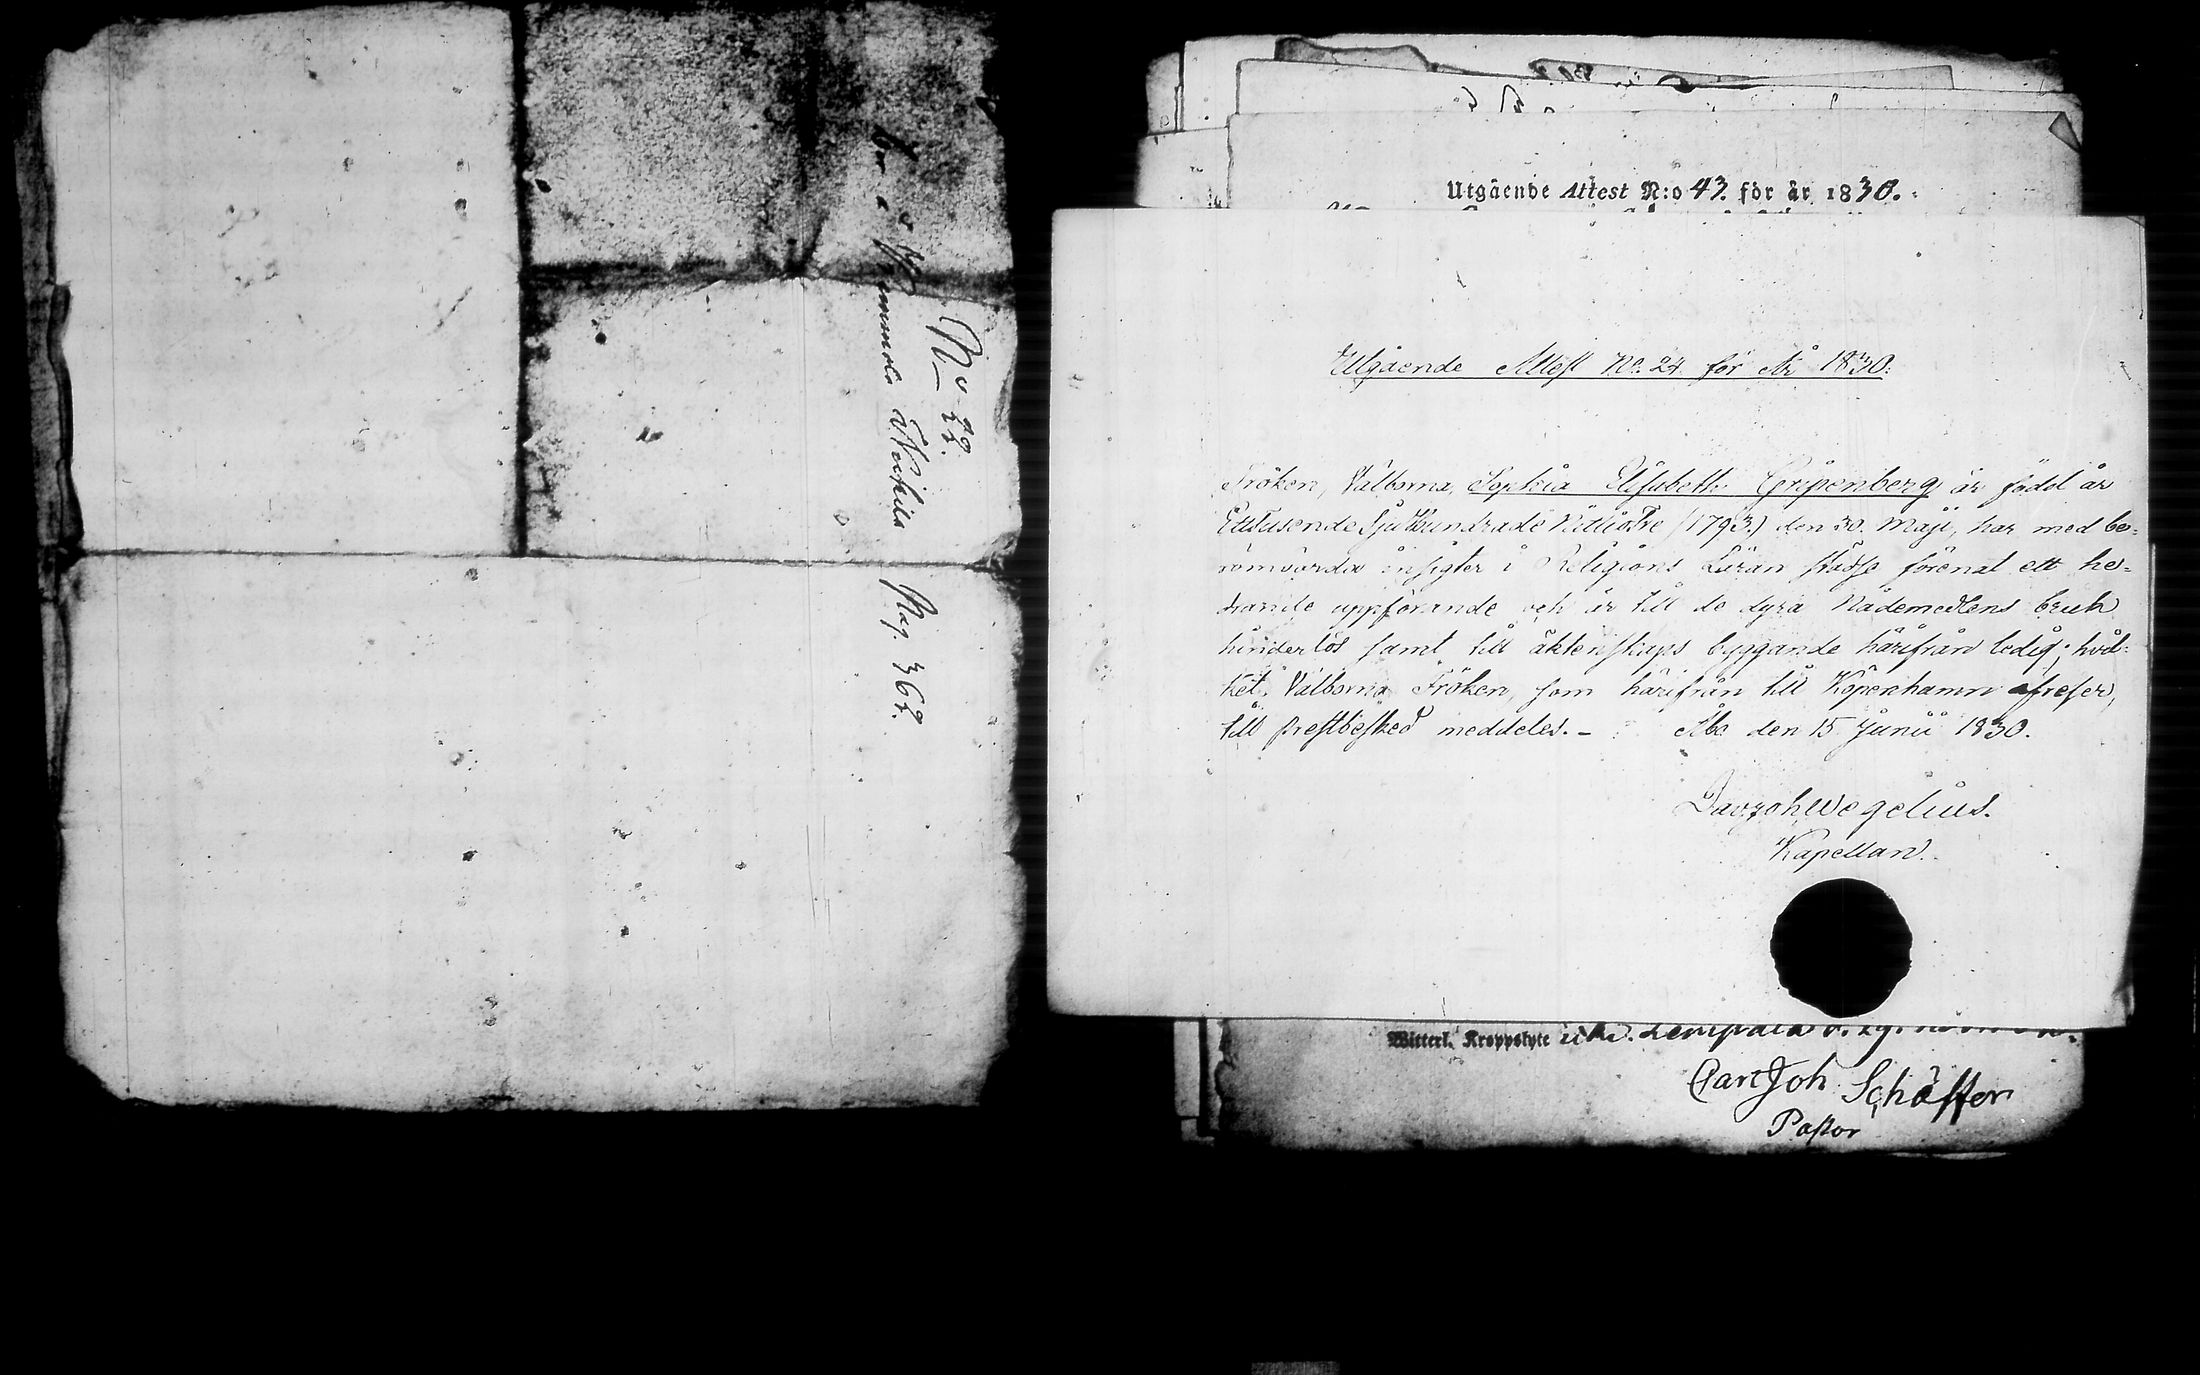 No 22.
Nummola Pag. 362.
Utgående Attest N:o 43. för år 1830.
Utgående Attest No. 24 för År 1830.
Fröken, Välborna, Sophia Elisabeth Gripenberg är född år
Ettusende Sjuhundrade Nittiotre (1793.) den 30. Maji, har med be-
römvärda insigter i Religions Läran städse förenat ett he-
drande uppförande och är till de dyra Nådemedlens bruk
hinderlös samt till äktenskaps byggande härifrån ledig; hvil-
ket, Välborna Fröken, som härifrån till Köpenhamn afreser,
till prestbesked meddeles. – Åbo den 15 Junii 1830.
Dav. Joh. Wegelius.
Kapellan.
Witterl. Kroppslyte Lempiala
Carl Joh Schäffer
Pastor